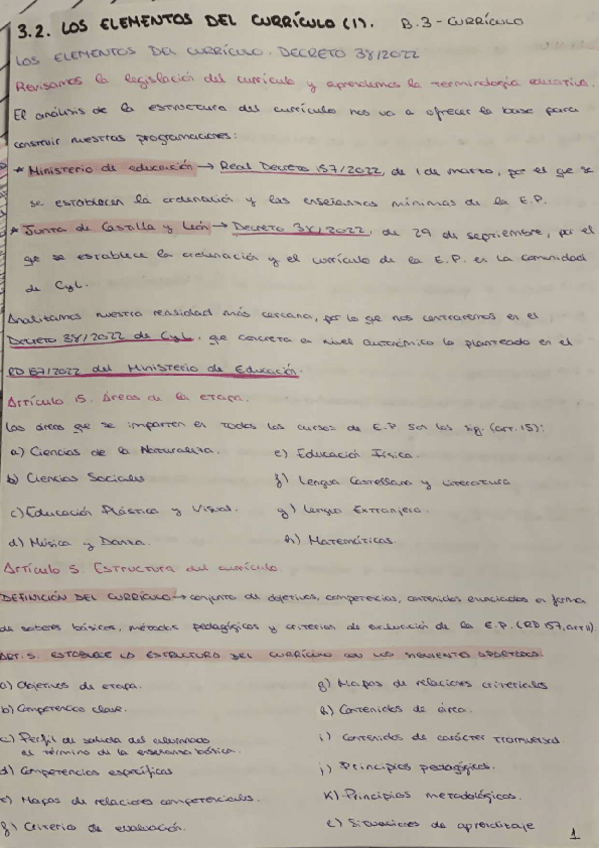 3.2. LOS ELEMENTOS DEL CURRÍCULO (1). B.3 - CURRÍCULO
LOS ELEMENTOS DEL CURRÍCULO. DECRETO 38/2022
Revisamos la legislación del currículo y aprendemos la terminología educativa.
El análisis de la estructura del currículo nos va a ofrecer la base para
construir nuestras programaciones:
* Ministerio de educación → Real Decreto 157/2022, de 1 de marzo, por el qe se
se establecen la ordenación y las enseñanzas mínimas de la E.P.
* Junta de Castilla y León → Decreto 38/2022, de 29 de septiembre, por el
qe se establece la ordenación y el currículo de la E.P. en la Comunidad
de CyL.
Analizamos nuestra realidad más cercana, por lo qe nos centraremos en el
Decreto 38/2022 de CyL, qe concreta a nivel autonómico lo planteado en el
RD 157/2022 del Ministerio de Educación.
Artículo 15. Áreas de la etapa.
Las áreas qe se imparten en todos los cursos de E.P son las sig. (art. 15):
a) Ciencias de la Naturaleza. e) Educación Física.
b) Ciencias Sociales f) Lengua Castellana y Literatura
c) Educación Plástica y Visual. g) Lengua Extranjera.
d) Música y Danza. h) Matemáticas.
Artículo 5. Estructura del currículo.
DEFINICIÓN DEL CURRÍCULO → conjunto de objetivos, competencias, contenidos enunciados en forma
de saberes básicos, métodos pedagógicos y criterios de evaluación de la E.P. (RD 157, art 11)
ART. 5. ESTABLECE LA ESTRUCTURA DEL CURRÍCULO CON LOS SIGUIENTES APARTADOS:
a) Objetivos de etapa. g) Mapas de relaciones criteriales
b) Competencias clave. h) Contenidos de área.
c) Perfil de salida del alumnado i) Contenidos de carácter transversal
al término de la enseñanza básica.
d) Competencias específicas j) Principios pedagógicos.
e) Mapas de relaciones competenciales. k) Principios metodológicos.
f) Criterios de evaluación. l) Situaciones de aprendizaje
1